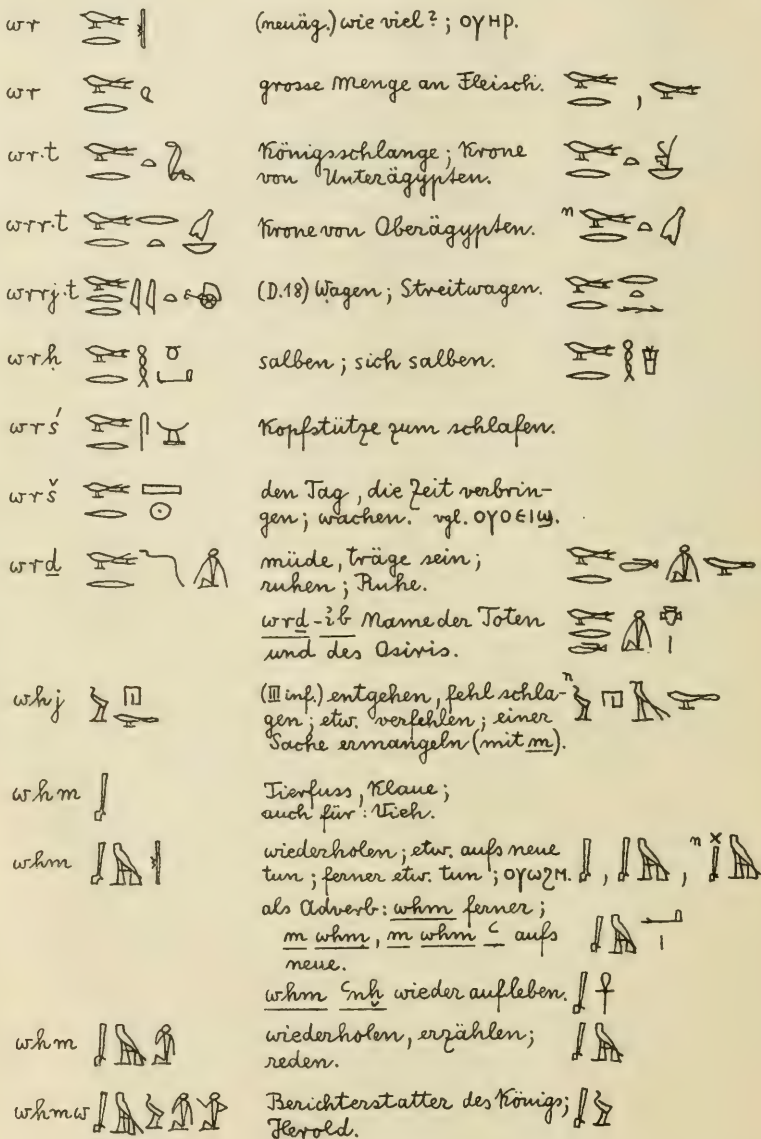 wr (neuäg.) wie viel?; ⲟⲩⲏⲣ.
wr grosse Menge an Fleisch. ,
wr·t Königsschlange; Krone
von Unterägypten.
wrr·t Krone von Oberägypten. n
wrrj·t (D.18) Wagen; Streitwagen.
wrḥ salben; sich salben.
wrś Kopfstütze zum schlafen.
wrš den Tag, die Zeit verbrin-
gen; wachen. vgl. ⲟⲩⲟⲉⲓϣ.
wrḏ müde, träge sein;
ruhen; Ruhe.
wrḏ-ib Name der Toten
und des Osiris.
whj (III inf.) entgehen, fehl schla- n
gen; etw. verfehlen; einer
Sache ermangeln (mit m).
whm Tierfuss, Klaue;
auch für: Vieh.
whm wiederholen; etw. aufs neue
tun; ferner etw. tun; ⲟⲩⲱϩⲙ. , , n
als Adverb: whm ferner;
m whm, m whm ꜥ aufs
neue.
whm ꜥnḫ wieder aufleben.
whm wiederholen, erzählen;
reden.
whmw Berichterstatter des Königs;
Herold.